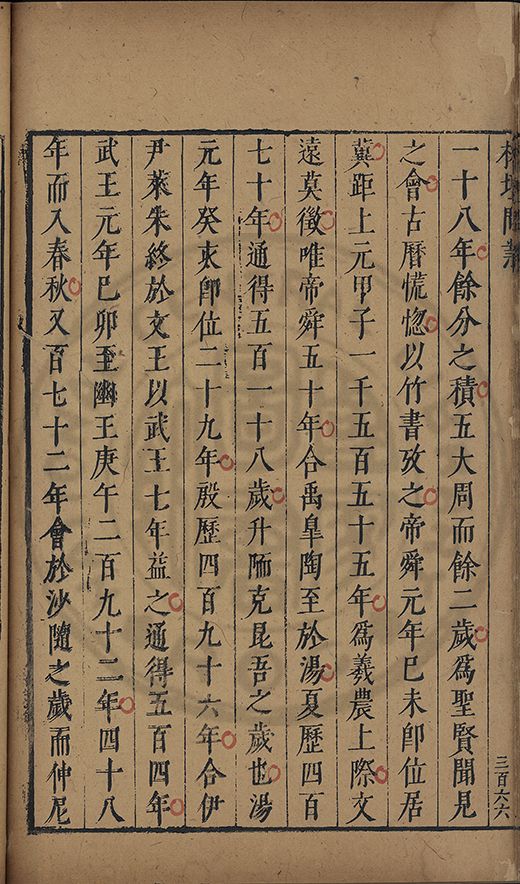 榕壇問業
一十八年餘分之積五大周而餘二歲爲聖賢聞見
之會古曆慌惚以竹書攷之帝舜元年巳未卽位居
冀距上元甲子一千五百五十五年爲羲農上際文
遠莫徵唯帝舜五十年合禹臯陶至於湯夏歷四百
七十年通得五百一十八歲升陑克昆吾之歲也湯
元年癸亥卽位二十九年殷歷四百九十六年合伊
尹萊朱終於文王以武王七年益之通得五百四年
武王元年巳卯至幽王庚午二百九十二年四十八
年而入春秋又百七十二年會於沙隨之歲而仲尼
三百六六